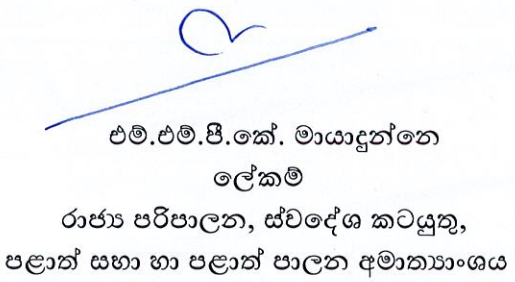 එම්.එම්.පී.කේ. මායාදුන්නෙ
ලේකම්
රාජ්‍ය පරිපාලන, ස්වදේශ කටයුතු,
පළාත් සභා හා පළාත් පාලන අමාත්‍යාංශය